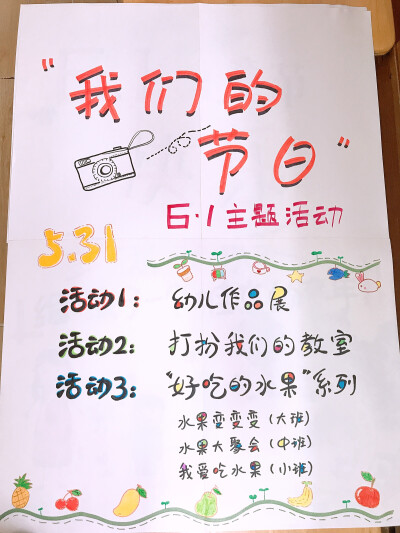 "我们的
节日"
6·1主题活动
5.31
活动1：幼儿作品展
活动2：打扮我们的教室
活动3："好吃的水果"系列
水果变变变（大班）
水果大聚会（中班）
我爱吃水果（小班）